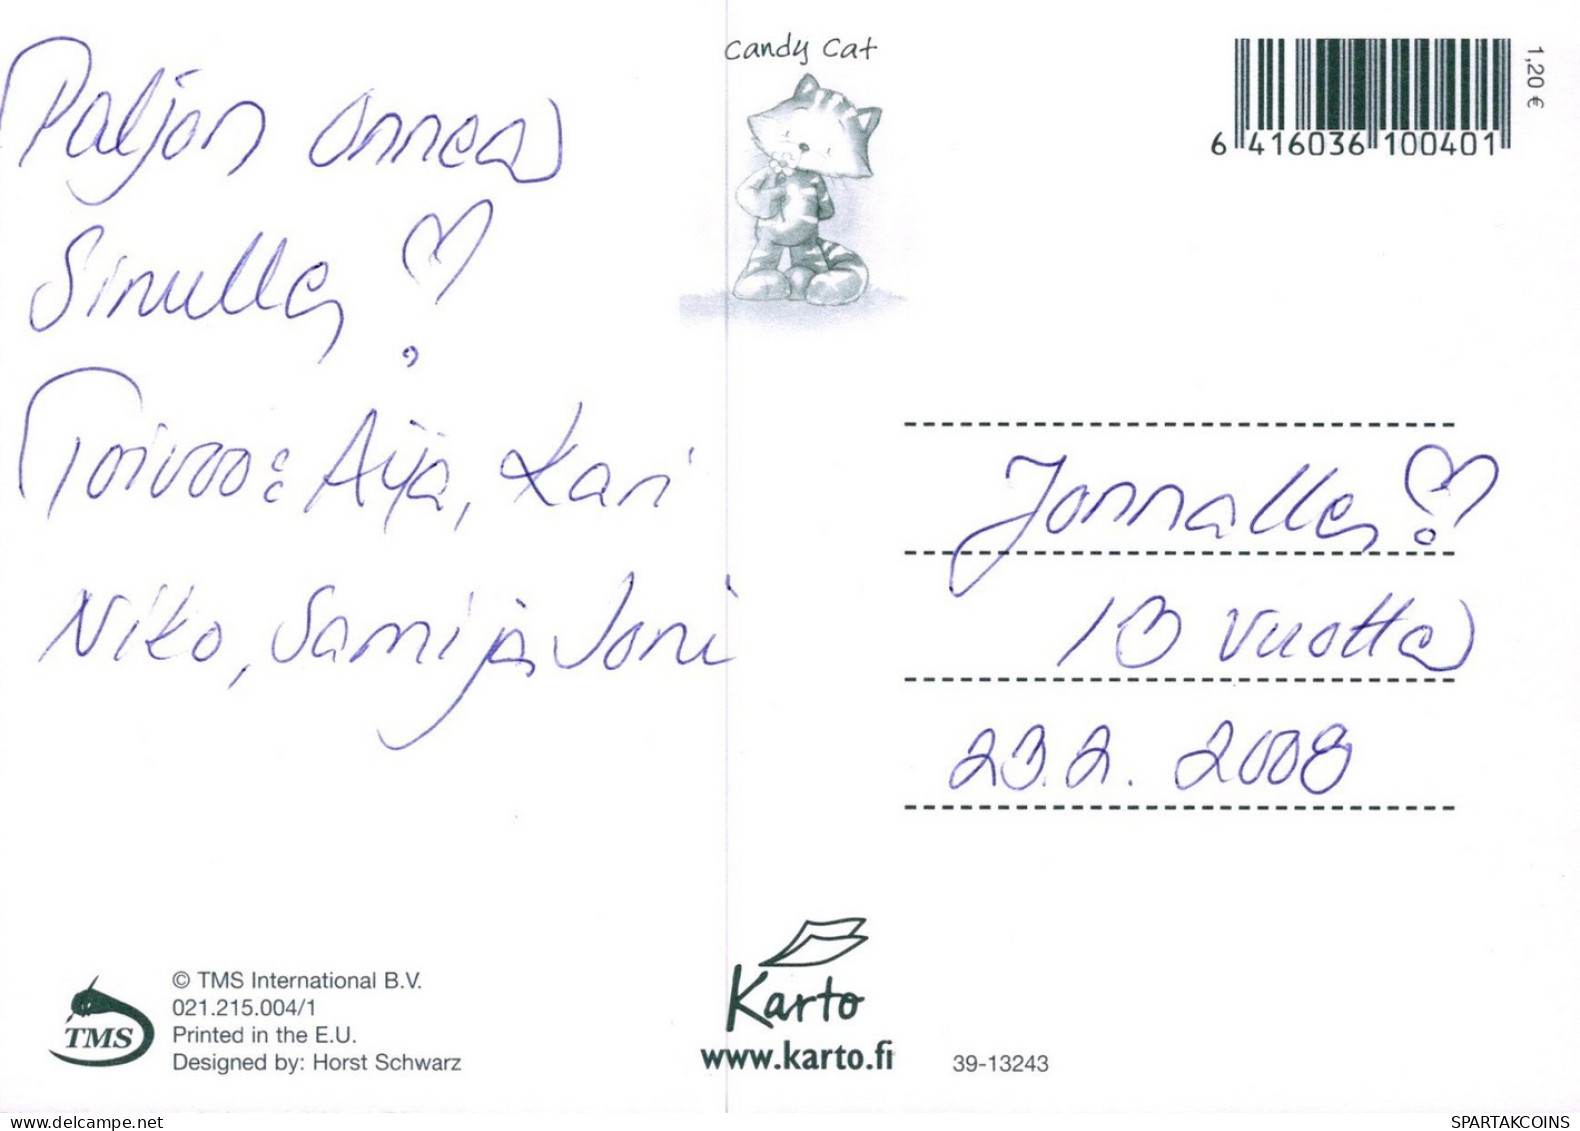 Paljon onnea
Sinulle
Toivoo: Aija, Kari
Niko, Sami ja Joni
Candy Cat
6 416036 100401
1,20 €
Jonnalle
13 vuotta
23.2.2008
© TMS International B.V.
021.215.004/1
Printed in the E.U.
Designed by: Horst Schwarz
TMS
Karto
www.karto.fi
39-13243
delcampe.net
SPARTAKCOINS